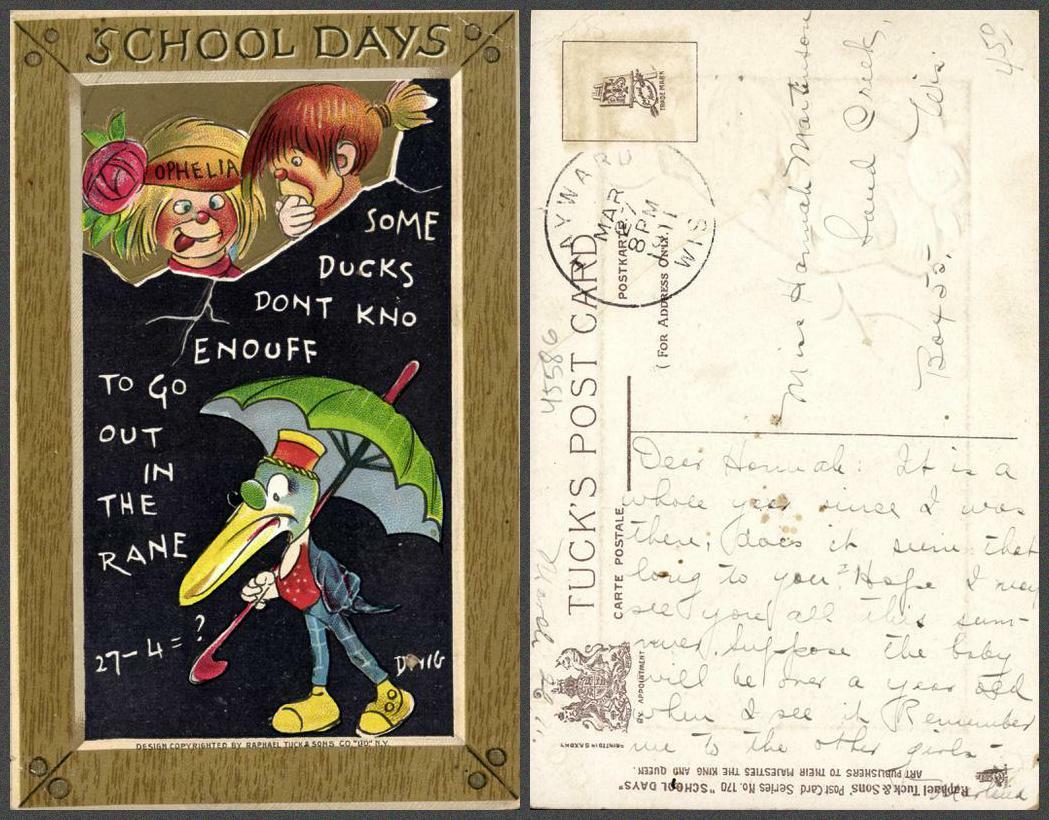 SCHOOL DAYS
OPHELIA
SOME
DUCKS
DONT KNO
ENOUFF
TO GO
OUT
IN
THE
RANE
27-4=?
DWIG
DESIGN COPYRIGHTED BY RAPHAEL TUCK & SONS CO. "LTD" N.Y.
TRADE MARK
HAYWARD
MAR
8 PM
1911
WIS
TUCK'S POST CARD
CARTE POSTALE.
POSTKARTE.
(FOR ADDRESS ONLY.)
BY APPOINTMENT
PRINTED IN SAXONY
45586
450
Miss Hannah Martinson
Sand Creek,
Wis.
Box 55.
Dear Hannah: It is a
whole year since I was
there, does it seem that
long to you? Hope I may
see you all this sum-
mer. Suppose the baby
will be over a year old
when I see it Remember
me to the other girls-
Raphael Tuck & Sons' Post Card Series No. 170 "SCHOOL DAYS"
ART PUBLISHERS TO THEIR MAJESTIES THE KING AND QUEEN.